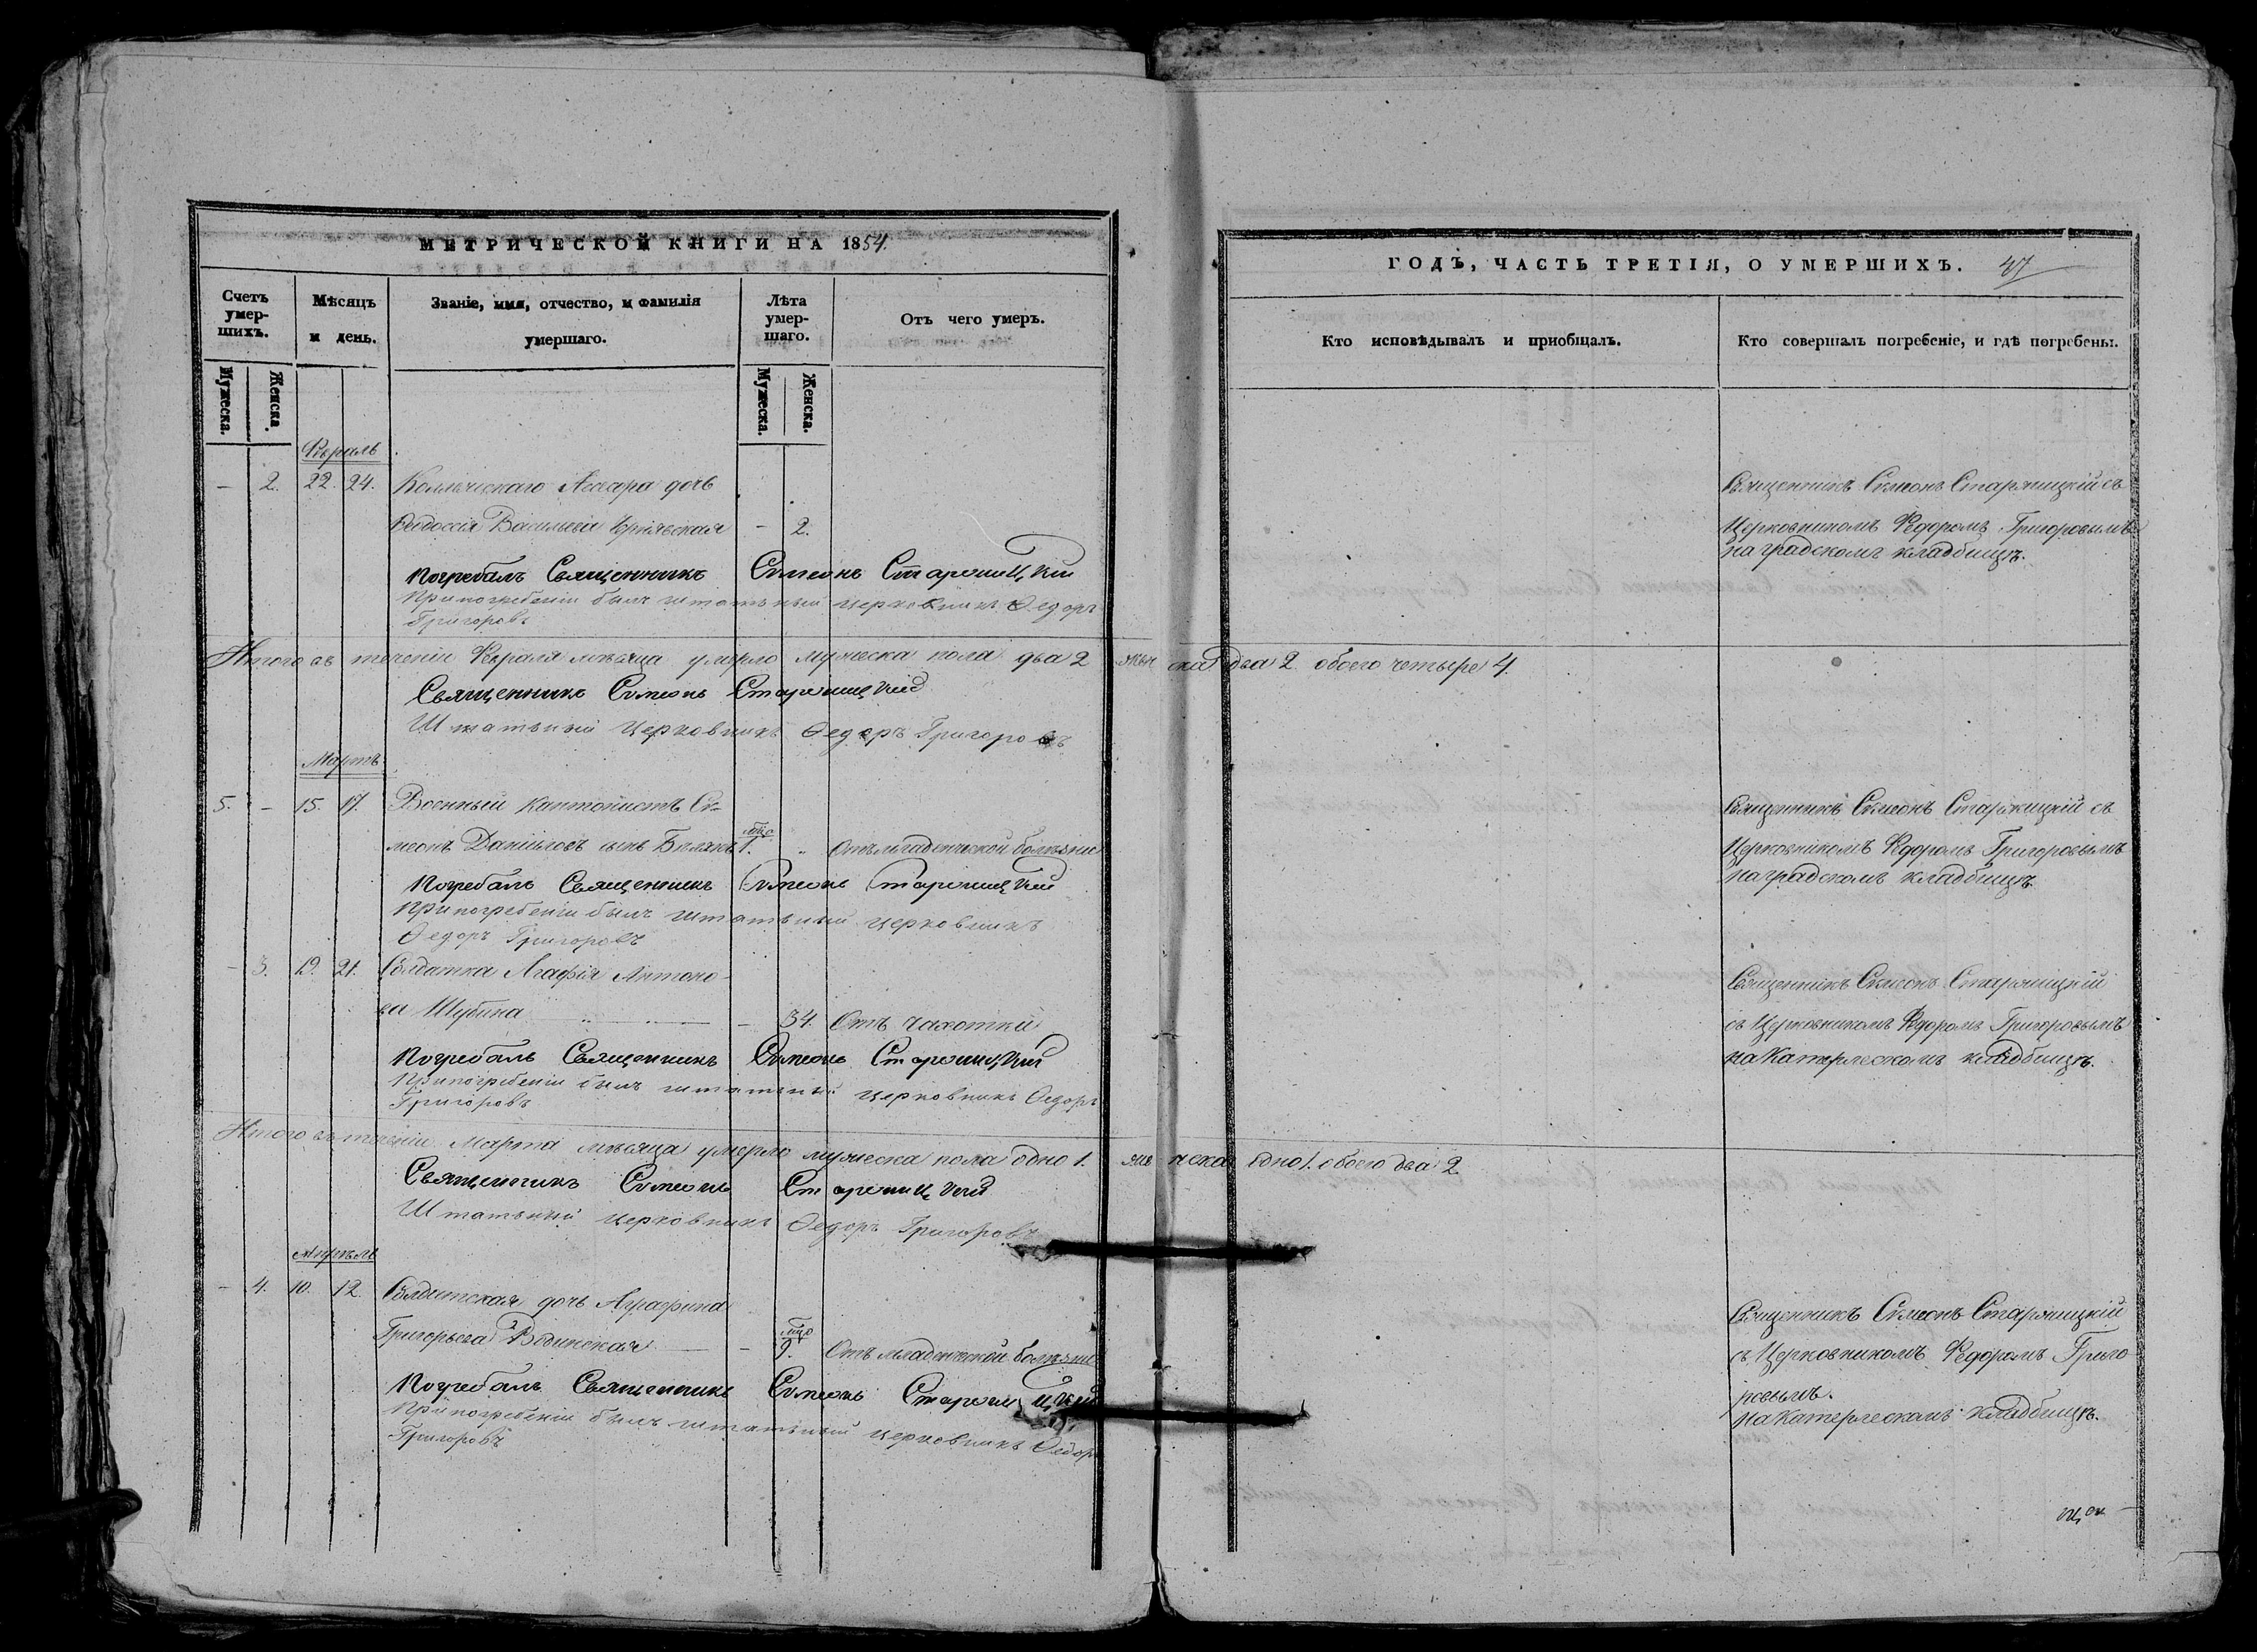 МЕТРИЧЕСКОЙ КНИГИ НА 1854.
Счетъ умер-шихъ.
Мужеска.
Женска.
Мѣсяцъ и день.
Званіе, имя, отчество, и фамилія умершаго.
Лѣта умер-шаго.
Мужеска.
Женска.
Отъ чего умеръ.
Февраль
– 2. 22. 24. дочь
Ѳеодосія Васильева – 2.
Погребалъ Священникъ Симеонъ Старожицкій
При погребеніи былъ штатный церковникъ Ѳедоръ
Григоровъ
Итого въ теченіи Февраля мѣсяца умерло мужеска пола два 2 женска два 2 обоего четыре 4.
Священникъ Симеонъ Старожицкій
Штатный церковникъ Ѳедоръ Григоровъ
Мартъ
5. – 15. 17. Военный кантонистъ Си-
меонъ Даніиловъ сынъ 1. мѣс. Отъ младенческой болѣзни
Погребалъ Священникъ Симеонъ Старожицкій
При погребеніи былъ штатный церковникъ
Ѳедоръ Григоровъ
– 3. 19. 21. Солдатка Агафія Антоно-
ва Шубина – 34. Отъ чахотки
Погребалъ Священникъ Симеонъ Старожицкій
При погребеніи былъ штатный церковникъ Ѳедоръ
Григоровъ
Итого въ теченіи Марта мѣсяца умерло мужеска пола одно 1. женска одно 1. обоего два 2
Священникъ Симеонъ Старожицкій
Штатный церковникъ Ѳедоръ Григоровъ
Апрѣль
– 4. 10. 12. Солдатская дочь Аграфина
Григорьева – 9. мѣс. Отъ младенческой болѣзни
Погребалъ Священникъ Симеонъ Старожицкій
При погребеніи былъ штатный церковникъ Ѳедоръ
Григоровъ
ГОДЪ, ЧАСТЬ ТРЕТІЯ, О УМЕРШИХЪ. 47
Кто исповѣдывалъ и приобщалъ.
Кто совершалъ погребеніе, и гдѣ погребены.
Священникъ Симеонъ Старожицкій съ
Церковникомъ Федоромъ Григоровымъ
на градскомъ кладбищѣ.
Священникъ Симеонъ Старожицкій съ
Церковникомъ Федоромъ Григоровымъ
на градскомъ кладбищѣ.
Священникъ Симеонъ Старожицкій
съ Церковникомъ Федоромъ Григоровымъ
на Катерлескомъ кладбищѣ.
Священникъ Симеонъ Старожицкій
съ Церковникомъ Федоромъ Григо
ровымъ.
на Катерлескомъ кладбищѣ.